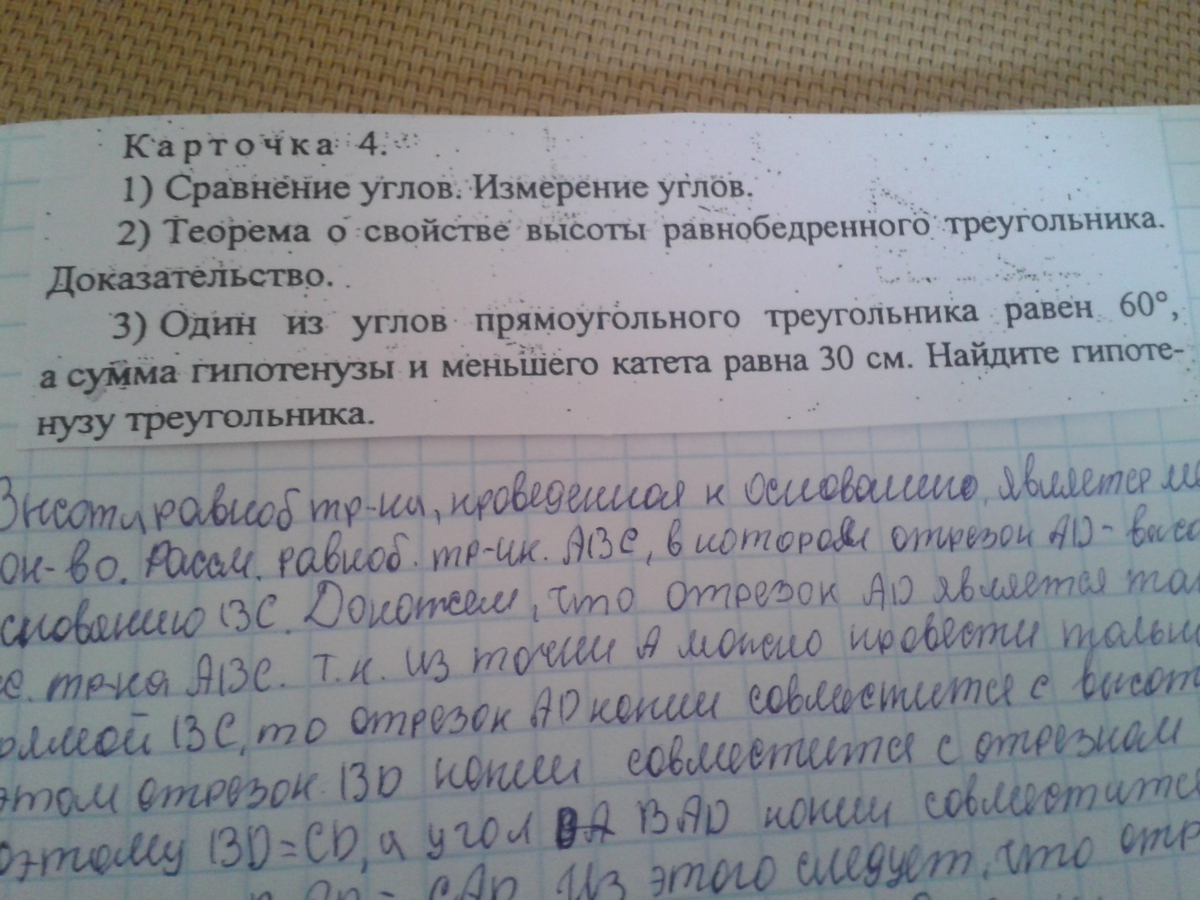 Карточка 4.
1) Сравнение углов. Измерение углов.
2) Теорема о свойстве высоты равнобедренного треугольника.
Доказательство.
3) Один из углов прямоугольного треугольника равен 60°,
а сумма гипотенузы и меньшего катета равна 30 см. Найдите гипоте-
нузу треугольника.
равноб тр-ка, проведенная к основанию, является
ок-во. Рассм. равноб. тр-ик. ABC, в котором отрезок AD - высо
снованию BC. Докажем, что отрезок AD является так
с. тр-ка ABC. Т.к. из точки A можно провести только
рямой BC, то отрезок AD копии совместится с высот
этом отрезок BD копии совместится с отрезком
оэтому BD=CD, а угол BAD копии совместится
CAD. Из этого следует, что отр